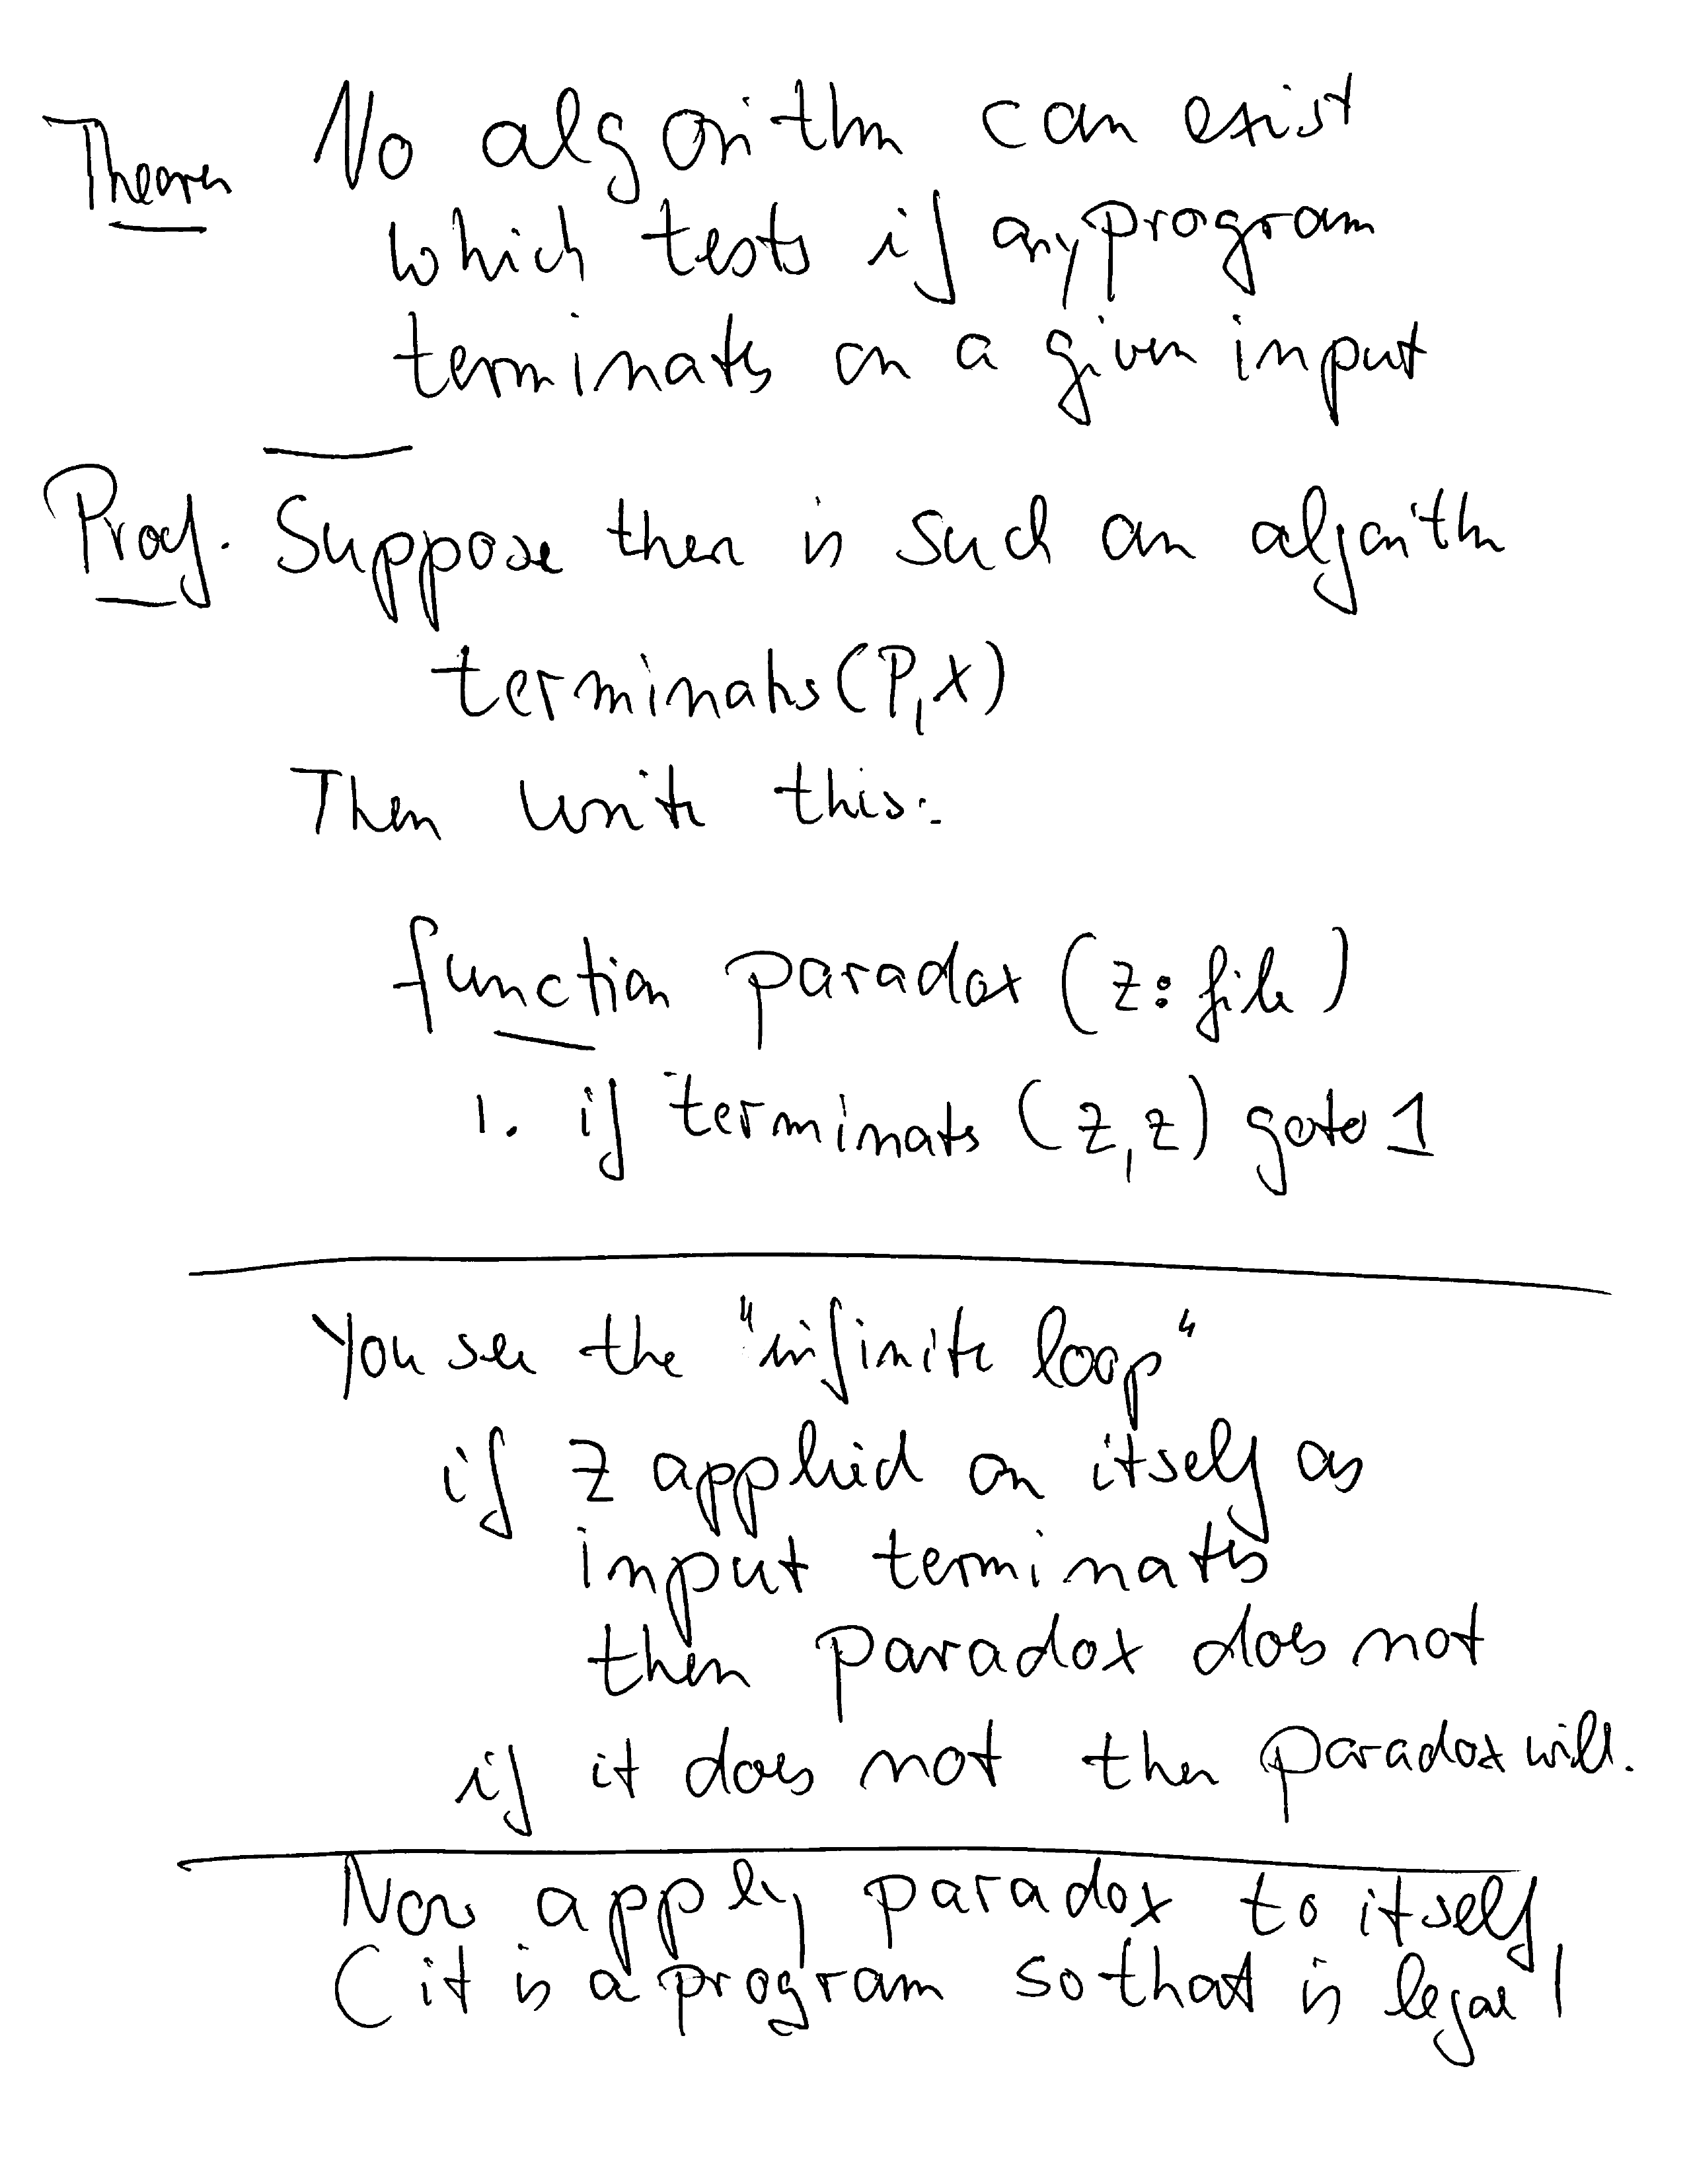 Theorem No algorithm can exist
which tests if any program
terminates on a given input
Proof. Suppose there is such an algorithm
terminates(P,X)
Then write this:
function paradox (z: file)
1. if terminates (z,z) goto 1
You see the "infinite loop"
if z applied on itself as
input terminates
then paradox does not
if it does not then paradox will.
Now apply paradox to itself
(it is a program so that is legal!